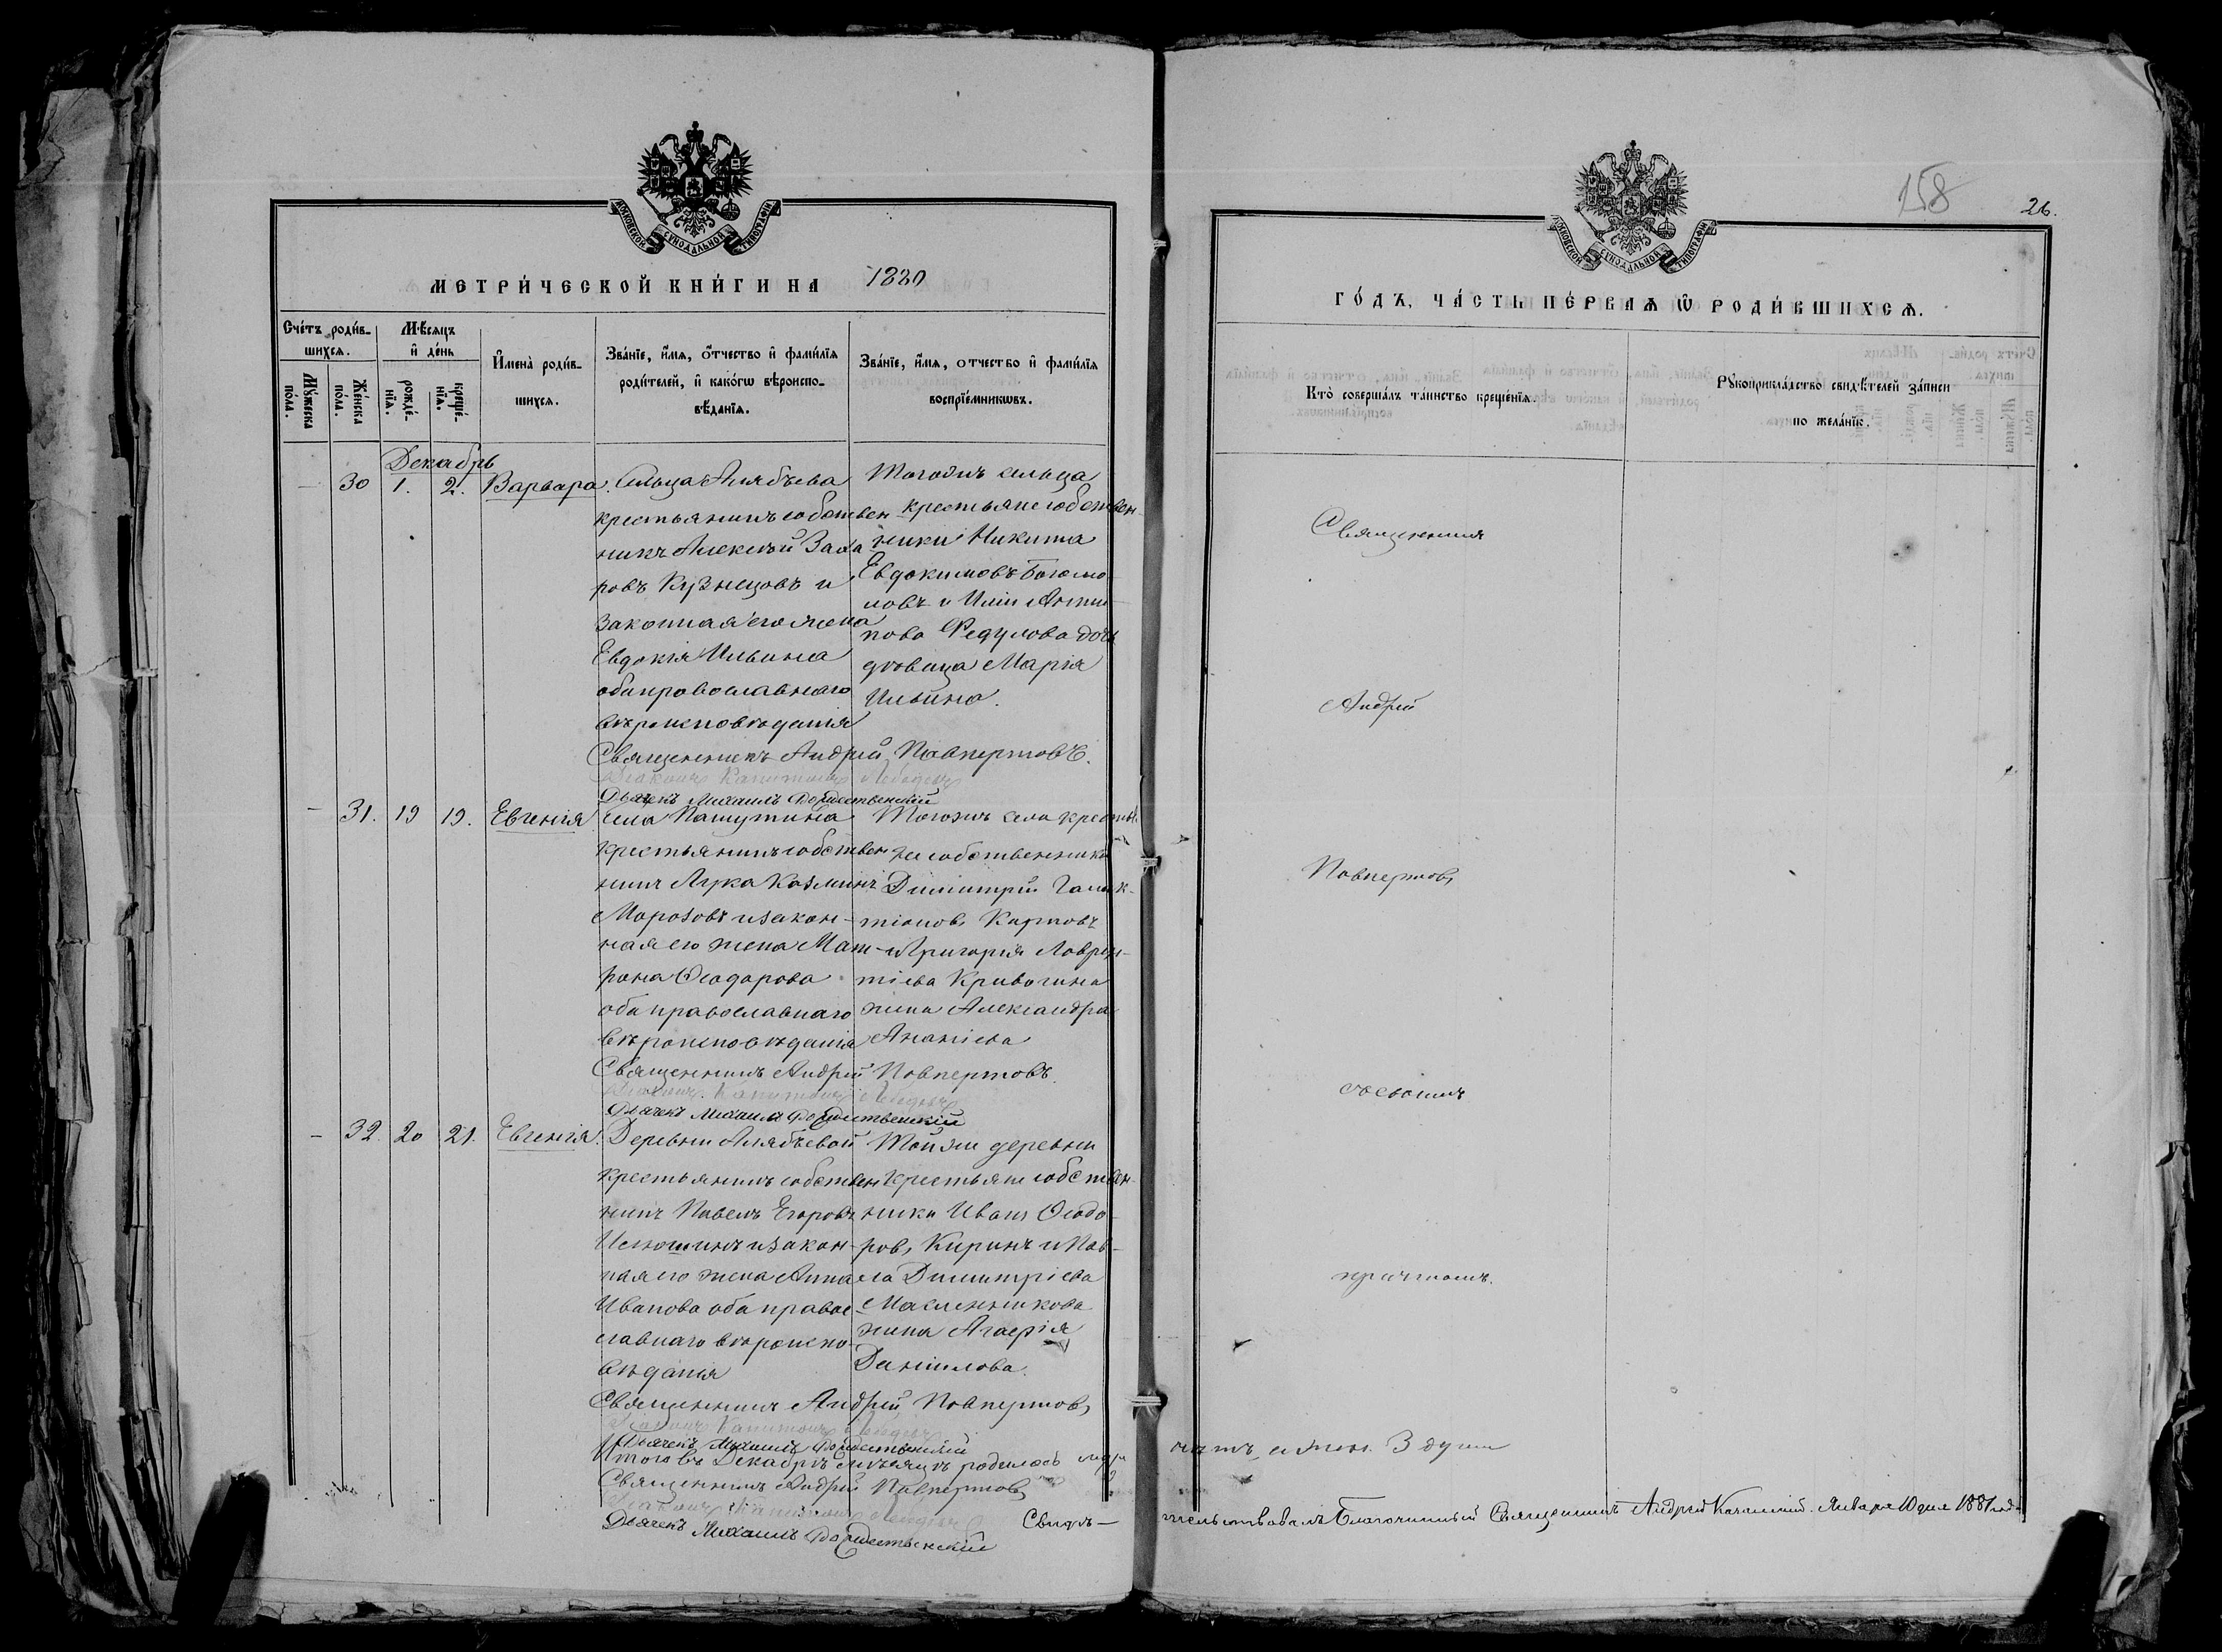 МОСКОВСКОЙ СУНОДАЛЬНОЙ ТИПОГРАФІИ
МЕТРИ́ЧЕСКОЙ КНИ́ГИ НА 1880
Сче́тъ роди́в-
шихсѧ.
Мꙋ́жеска
по́ла.
Же́нска
по́ла.
Мѣ́сѧцъ
и҆ де́нь
рожде́-
нїѧ.
креще́-
нїѧ.
И҆мена̀ роди́в-
шихсѧ.
Зва́нїе, и҆́мѧ, ѻ҆́тчество и҆ фами́лїѧ
роди́телей, и҆ како́гѡ вѣроиспо-
вѣ́данїѧ.
Зва́нїе, и҆́мѧ, отчество и҆ фами́лїѧ
воспрїе́мникѡвъ.
Декабрь
30 1. 2. Варвара.
Сельца Алябьева
крестьянинъ собствен
никъ Алексѣй Заха
ровъ Кузнецовъ и
законная его жена
Евдокія Ильина
оба православнаго
вѣроисповѣданія
Тогожъ сельца
крестьяне собствен-
ники Никита
Евдокимовъ Богомо
ловъ и Ильи Анти
пова Федулова дочь
дѣвица Марія
Ильина.
Священникъ Андрей Повпертовъ.
Діаконъ Капитонъ Лебедевъ
Дьячекъ Михаилъ Рождественскій
31. 19 19. Евгенія
Села Пашутина
крестьянинъ собствен
никъ Лука Козминъ
Морозовъ и закон-
ная его жена Мат-
рона Ѳеодорова
оба православнаго
вѣроисповѣданія
Тогожъ села крестья
не собственники
Димитрій Галак-
тіоновъ Карповъ
и Григорія Лаврен-
тіева Кривогина
жена Александра
Ананіева
Священникъ Андрей Повпертовъ.
Діаконъ Капитонъ Лебедевъ
Дьячекъ Михаилъ Рождественскій
32. 20 21. Евгенія.
Деревни Алябьевой
крестьянинъ собствен
никъ Павелъ Егоровъ
Илюшинъ и закон-
ная его жена Анна
Иванова оба правос-
лавнаго вѣроиспо-
вѣданія
Той же деревни
крестьяне собствен-
ники Иванъ Ѳеодо-
ровъ Киринъ и Пав-
ла Димитріева
Масленникова
жена Агаѳія
Даніилова.
Священникъ Андрей Повпертовъ
Діаконъ Капитонъ Лебедевъ
Дьячекъ Михаилъ Рождественскій
Итого въ Декабрѣ мѣсяцѣ родилось
Священникъ Андрей Повпертовъ
Діаконъ Капитонъ Лебедевъ
Дьячекъ Михаилъ Рождественскій
Свидѣ-
158
26.
МОСКОВСКОЙ СУНОДАЛЬНОЙ ТИПОГРАФІИ
ГО́ДЪ, ЧА́СТЬ ПЕ́РВАѦ Ѿ РОДИ́ВШИХСѦ.
Кто̀ соверша́лъ та́инство креще́нїѧ.
Рꙋкоприкла́дство свидѣ́телей за́писи
по жела́нїю.
Священникъ
Андрей
Повпертовъ
съ своимъ
причтомъ.
3 души
тельствовалъ Благочинный Священникъ Андрей Января 10 дня 1881 года